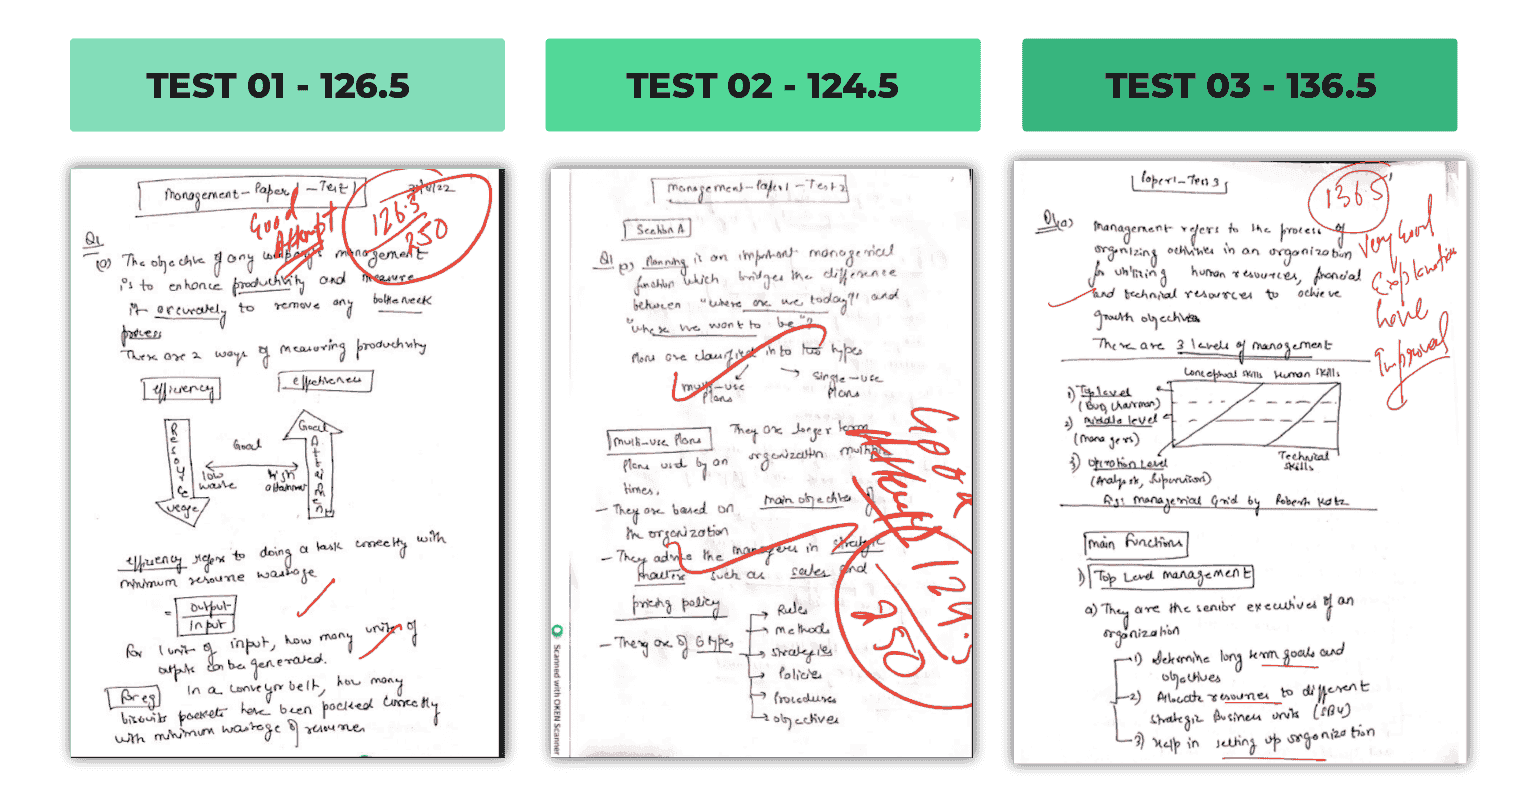 TEST 01 - 126.5
Management-Paper1-Test1
126.5
250
Good
Attempt
Q1
(a) The objective of any company's management
is to enhance productivity and measure
it accurately to remove any bottleneck
process
There are 2 ways of measuring productivity
efficiency
effectiveness
Goal
Goal
low
waste
High
attainment
efficiency refers to doing a task correctly with
minimum resource wastage
= output
input
For 1 unit of input, how many units of
output can be generated.
For eg
In a conveyor belt, how many
biscuits packets have been packed correctly
with minimum wastage of resources
TEST 02 - 124.5
Management-Paper1-Test2
Section A
Q1 (a) Planning is an important managerial
function which bridges the difference
between "where are we today" and
"where we want to be"?
Plans are classified into two types
multi-use
Plans
Single-use
Plans
Multi-use Plans
They are longer term
Plans used by an organization multiple
times.
- They are based on main objectives of
the organization
- They advise the managers in strategic
matters such as sales and
pricing policy
- They are of 6 types
Rules
methods
strategies
Policies
Procedures
objectives
Good
Attempt
124.5
250
Scanned with OKEN Scanner
TEST 03 - 136.5
Paper1-Test3
136.5
Very Good
Explanation
have
Improved
Q1(a) Management refers to the process of
organizing activities in an organization
for utilizing human resources, financial
and technical resources to achieve
growth objectives
There are 3 levels of management
Conceptual skills Human Skills
1) Top level
(BOD, chairman)
2) Middle level
(managers)
3) Operation Level
(Analysts, Supervisors)
Technical
Skills
Fig: Managerial Grid by Robert Katz
Main Functions
1) Top Level management
a) They are the senior executives of an
organization
1) Determine long term goals and
objectives
2) Allocate resources to different
strategic Business units (SBU)
3) Help in setting up organization